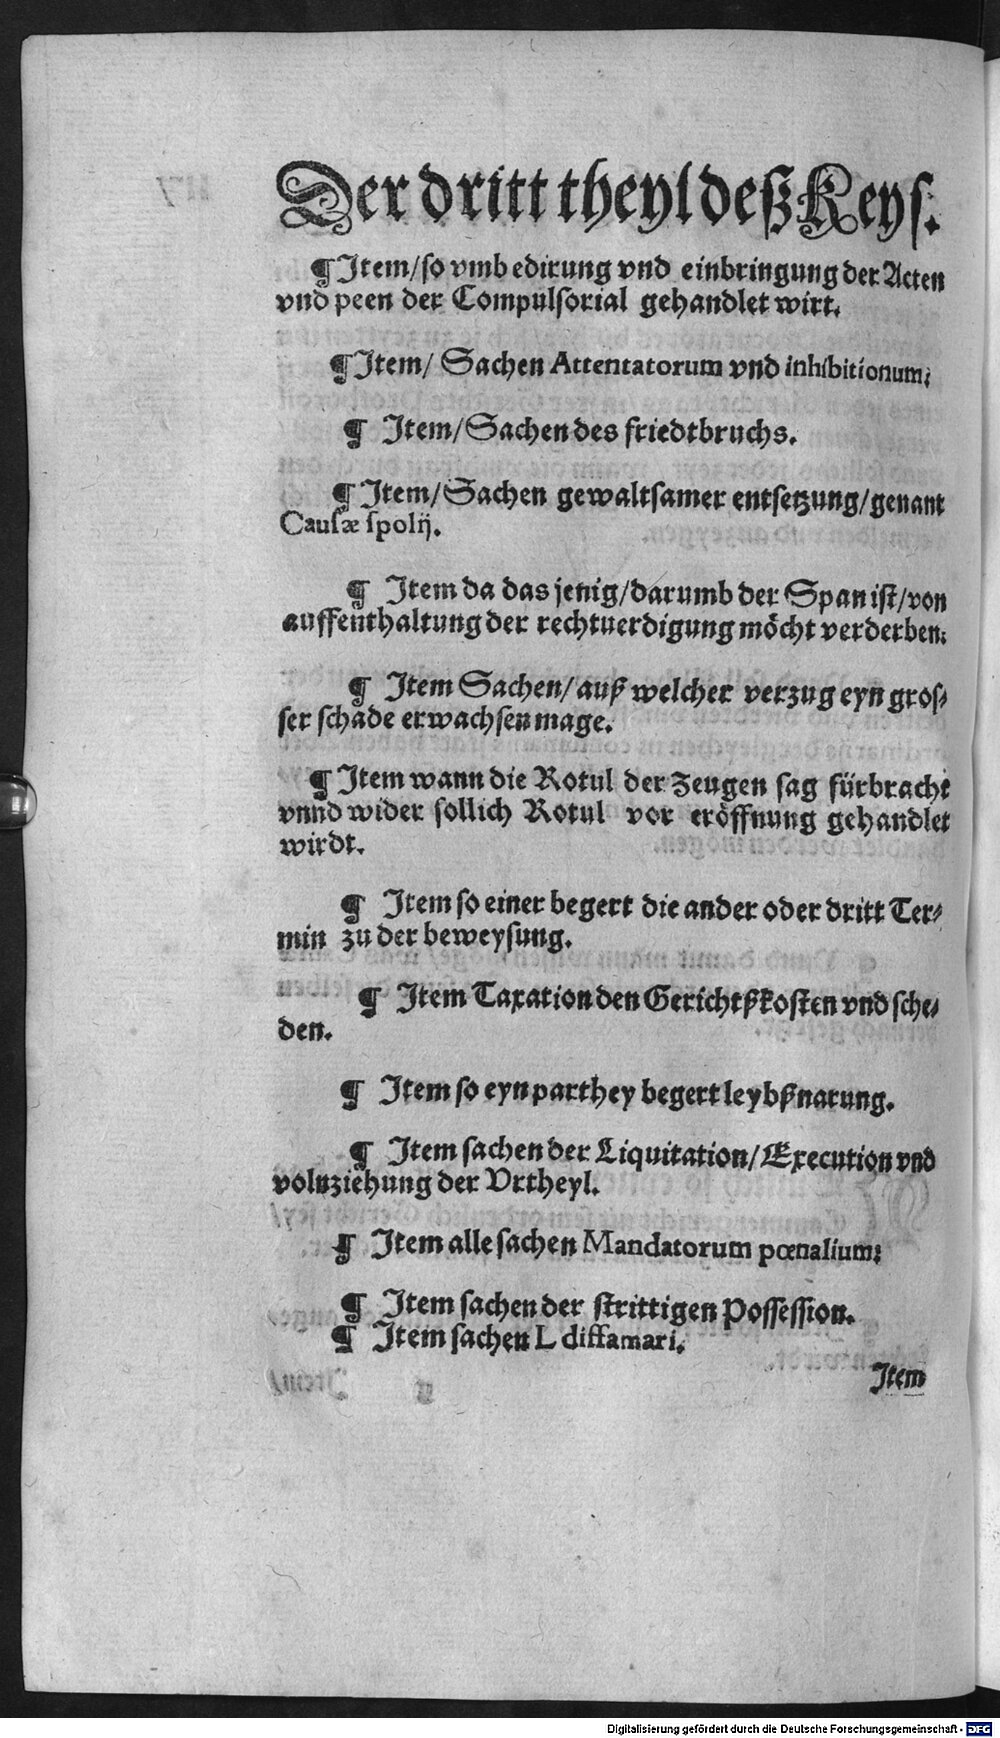 Der dritt theyl deß Keys.
¶ Item/so vmb edirung vnd einbringung der Acten
vnd peen der Compulsorial gehandlet wirt.
¶ Item/ Sachen Attentatorum vnd inhibitionum;
¶ Item/Sachen des friedtbruchs.
¶ Item/Sachen gewaltsamer entsetzung/genant
Causæ spolij.
¶ Item da das jenig/darumb der Span ist/von
auffenthaltung der rechtuerdigung möcht verderben.
¶ Item Sachen/auß welcher verzug eyn gros-
ser schade erwachsen mage.
¶ Item wann die Rotul der Zeugen sag fürbracht
vnnd wider sollich Rotul vor eröffnung gehandlet
wirdt.
¶ Item so einer begert die ander oder dritt Ter-
min zu der beweysung.
¶ Item Taxation den Gerichtßkosten vnd sche-
den.
¶ Item so eyn parthey begert leybßnarung.
¶ Item sachen der Liquitation/Execution vnd
volnziehung der Vrtheyl.
¶ Item alle sachen Mandatorum pœnalium;
¶ Item sachen der strittigen Possession.
¶ Item sachen L diffamari.
Item
Digitalisierung gefördert durch die Deutsche Forschungsgemeinschaft - DFG